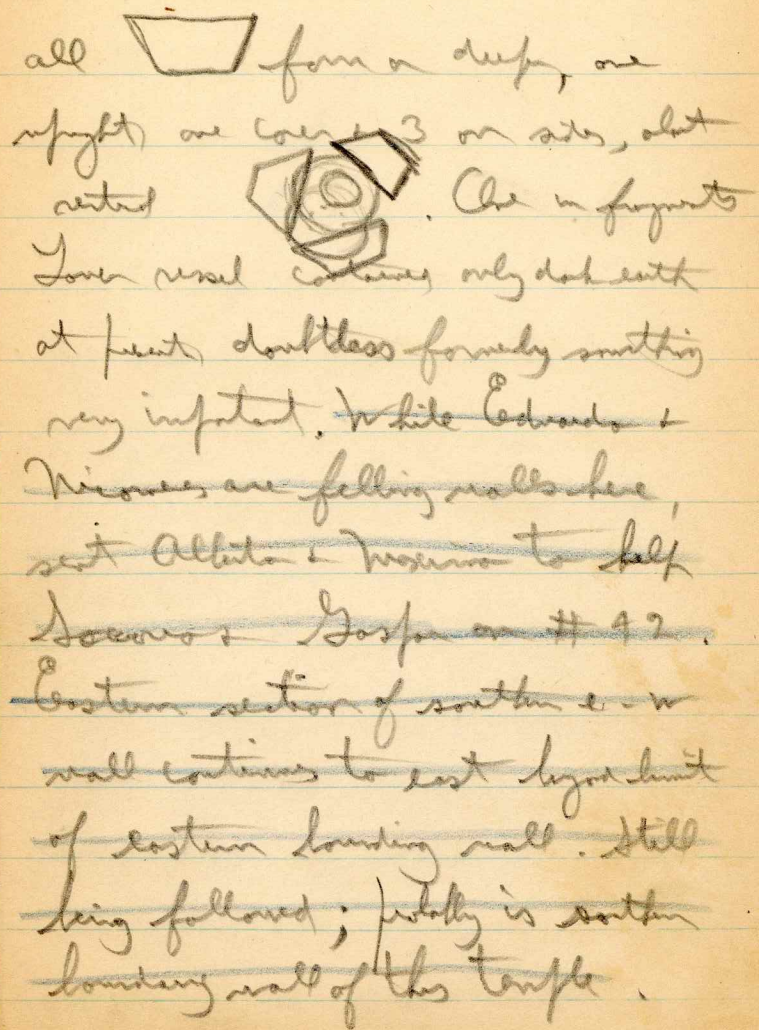 all form or deeper, one
upright one cover & 3 on sides, about
vertical . One in fragments
Lower vessel contained only dark earth
at present, doubtless formerly something
very important. While Eduardo &
are felling walls here,
sent Alberto & to help
Socorro & Gaspar on # 42.
Eastern section of southern e-w
wall continues to east beyond limit
of eastern bounding wall. Still
being followed; probably is southern
boundary wall of this temple.